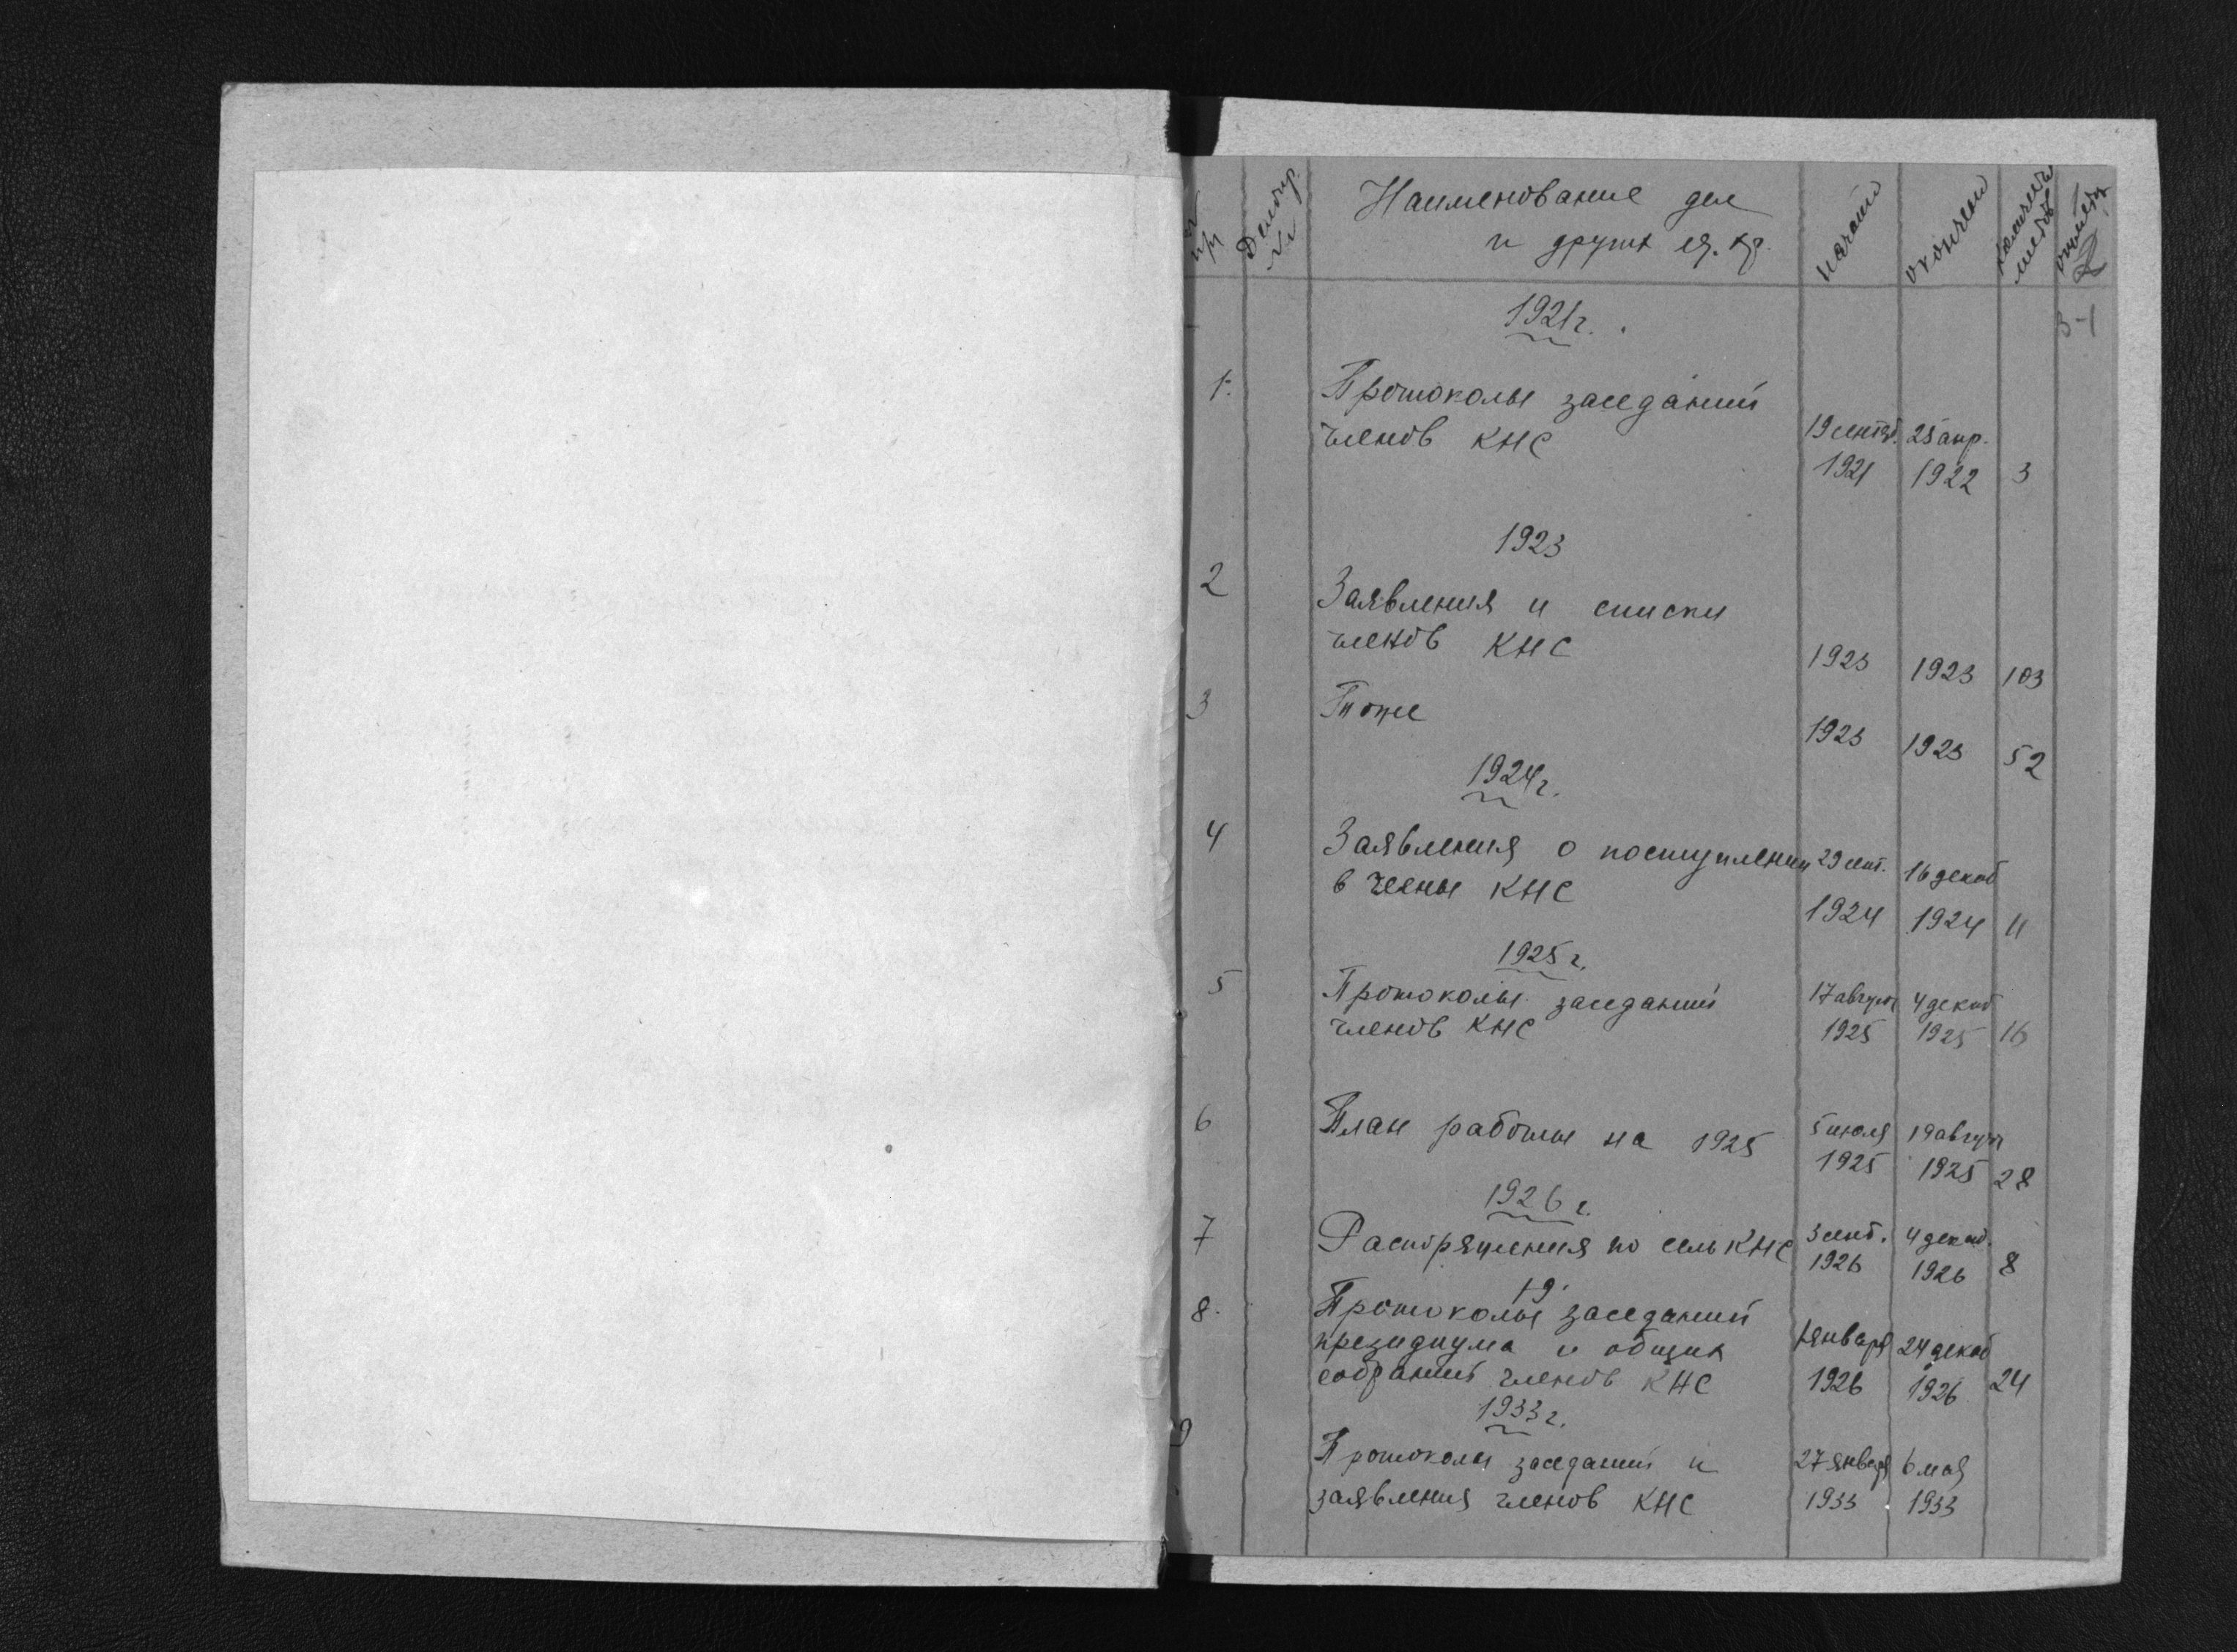 № п/п
Делопр. №№
Наименование дел
и других ед. хр.
начато
окончено
количество листов
3-1
1921 г.
1. Протоколы заседаний
членов КНС
19 сентяб. 1921
25 апр. 1922
3
1923
2 Заявления и списки
членов КНС
1923 1923 103
3 Тоже
1923 1923 52
1924 г.
4 Заявления о поступлении
в члены КНС
29 сент. 1924
16 декаб 1924
11
1925 г.
5 Протоколы заседаний
членов КНС
17 август 1925
4 декаб 1925
16
6 План работы на 1925
5 июля 1925
19 август 1925
28
1926 г.
7 Распоряжения по селькнс
3 сент. 1926
4 декаб. 1926
8
19
8. Протоколы заседаний
президиума и общих
собраний членов КНС
1 января 1926
24 декаб 1926
24
1933 г.
9 Протоколы заседаний и
заявления членов КНС
27 января 1933
6 мая 1933